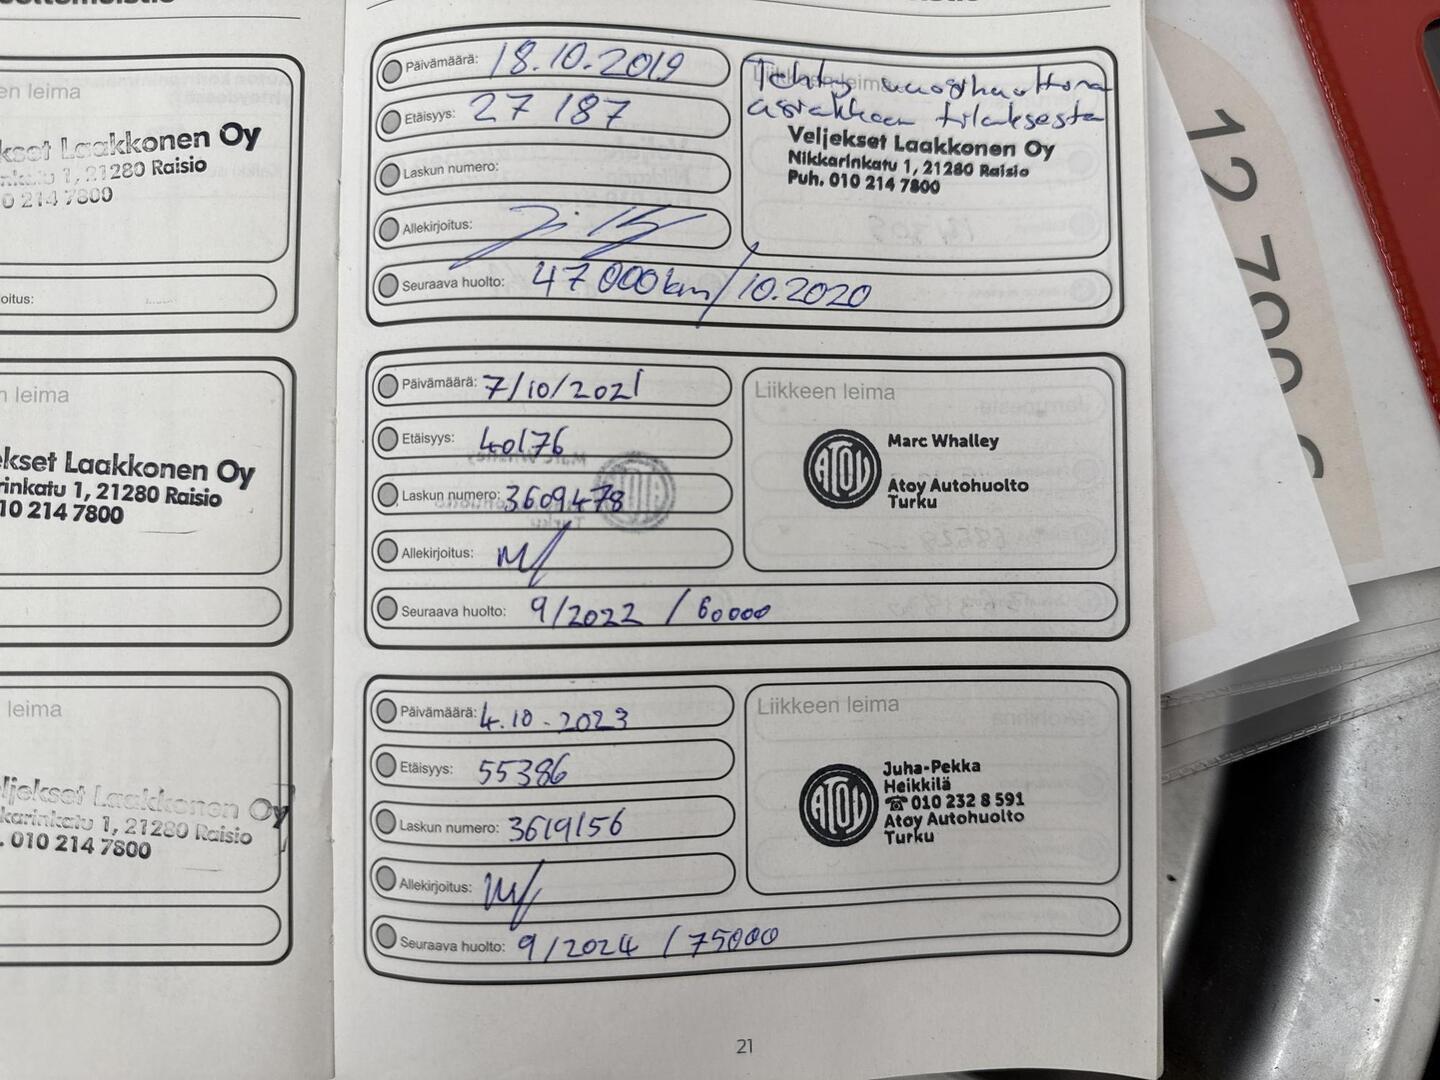 en leima
kset Laakkonen Oy
1, 21280 Raisio
0 214 7800
oitus:
n leima
ekset Laakkonen Oy
rinkatu 1, 21280 Raisio
10 214 7800
leima
ljekset Laakkonen Oy
karinkatu 1, 21280 Raisio
. 010 214 7800
Päivämäärä: 18.10.2019
Etäisyys: 27 187
Laskun numero:
Allekirjoitus:
Seuraava huolto: 47 000km/10.2020
Liikkeen leima
Tehty vuosihuoltona
asiakkaan tilauksesta
Veljekset Laakkonen Oy
Nikkarinkatu 1, 21280 Raisio
Puh. 010 214 7800
Päivämäärä: 7/10/2021
Etäisyys: 40176
Laskun numero: 3609478
Allekirjoitus:
Seuraava huolto: 9/2022 / 60000
Liikkeen leima
ATOY
Marc Whalley
Atoy Autohuolto
Turku
Päivämäärä: 4.10.2023
Etäisyys: 55386
Laskun numero: 3619156
Allekirjoitus:
Seuraava huolto: 9/2024 / 75000
Liikkeen leima
ATOY
Juha-Pekka
Heikkilä
☎ 010 232 8 591
Atoy Autohuolto
Turku
21